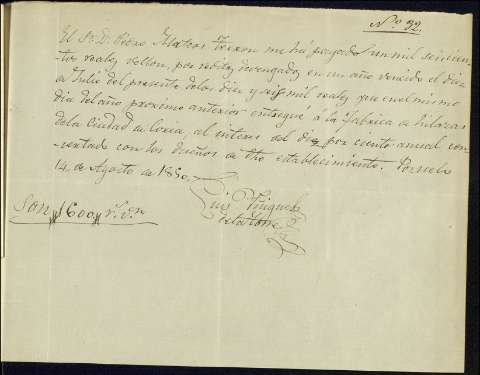 Nº 92.
El Sr. D. Pedro Mateos Trexon me há pagado un mil seiscien-
tos reales vellon, por reditos devengados en un año vencido el dia
a Julio del presente delos diez y seis mil reales que en el mismo
dia del año proximo anterior entregué á la Fabrica de hilazas
dela Ciudad de Coria, al interes del diez por ciento anual con-
certado con los dueños de dho establecimiento.
14 de Agosto de 1850.
Luis
Son 1600 rs. vn.